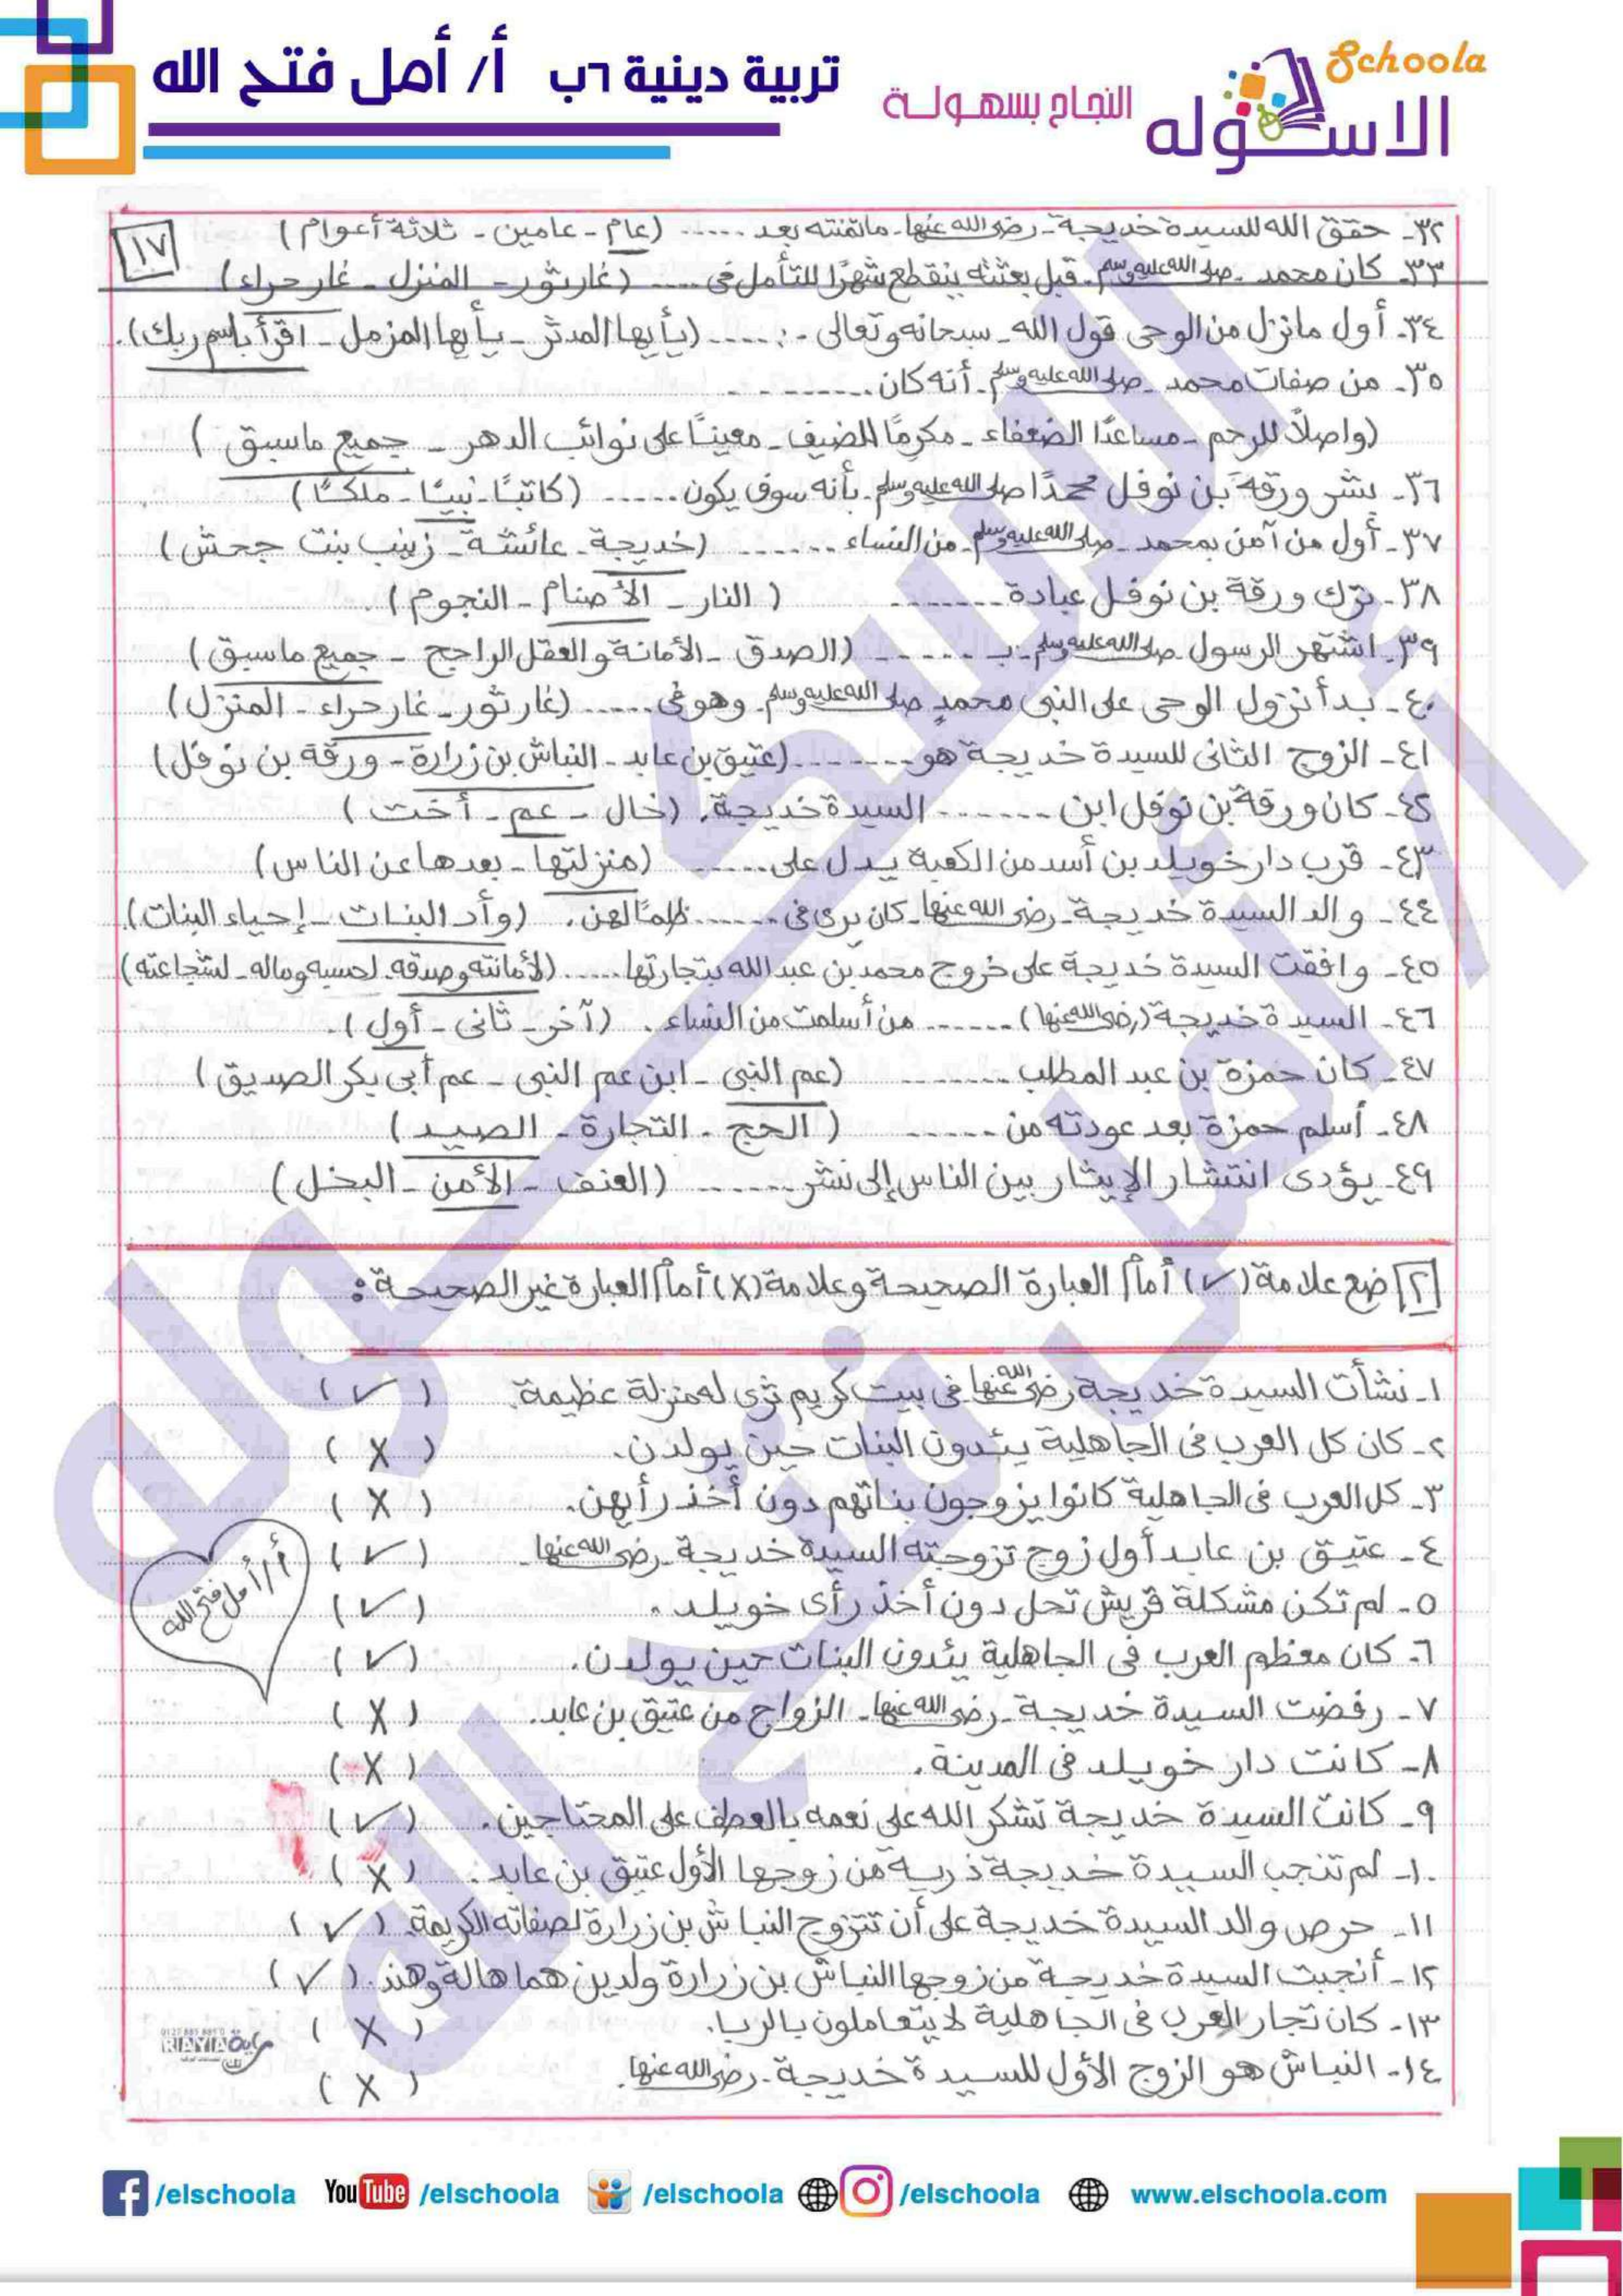 Schoola
الاسكوله
النجاح بسهولة
تربية دينية ٦ب أ/ أمل فتح الله
١٧
٣٢- حقق الله للسيدة خديجة - رضى الله عنها - ماتمنته بعد ...... (عام - عامين - ثلاثة أعوام)
٣٣- كان محمد - صلى الله عليه وسلم - قبل بعثته ينقطع شهرًا للتأمل فى ..... (غار ثور - المنزل - غار حراء)
٣٤- أول مانزل من الوحى قول الله - سبحانه وتعالى - : ..... (يأيها المدثر - يأيها المزمل - اقرأ باسم ربك).
٣٥- من صفات محمد - صلى الله عليه وسلم - أنه كان ........
(واصلًا للرحم - مساعدًا الضعفاء - مكرمًا للضيف - معينًا على نوائب الدهر - جميع ماسبق)
٣٦- بشر ورقة بن نوفل محمدًا صلى الله عليه وسلم - بأنه سوف يكون ...... (كاتبًا - نبيًا - ملكًا)
٣٧- أول من آمن بمحمد - صلى الله عليه وسلم - من النساء ....... (خديجة - عائشة - زينب بنت جحش)
٣٨- ترك ورقة بن نوفل عبادة ........ (النار - الأصنام - النجوم).
٣٩- اشتهر الرسول صلى الله عليه وسلم - بـ ....... (الصدق - الأمانة والعقل الراجح - جميع ماسبق)
٤٠- بدأ نزول الوحى على النبى محمدٍ صلى الله عليه وسلم - وهو فى ...... (غار ثور - غار حراء - المنزل)
٤١- الزوج الثانى للسيدة خديجة هو ........ (عتيق بن عابد - النباش بن زرارة - ورقة بن نوفل)
٤٢- كان ورقة بن نوفل ابن ....... السيدة خديجة. (خال - عم - أخت)
٤٣- قرب دار خويلد بن أسد من الكعبة يدل على ...... (منزلتها - بعدها عن الناس)
٤٤- والد السيدة خديجة - رضى الله عنها - كان يرى فى ...... ظلمًا لهن. (وأد البنات - إحياء البنات).
٤٥- وافقت السيدة خديجة على خروج محمد بن عبد الله بتجارتها ..... (لأمانته وصدقه - لحسبه وماله - لشجاعته)
٤٦- السيدة خديجة (رضى الله عنها) ...... من أسلمت من النساء. (آخر - ثانى - أول).
٤٧- كان حمزة بن عبد المطلب ........ (عم النبى - ابن عم النبى - عم أبى بكر الصديق)
٤٨- أسلم حمزة بعد عودته من ....... (الحج - التجارة - الصيد)
٤٩- يؤدى انتشار الإيثار بين الناس إلى نشر ....... (العنف - الأمن - البخل)
[٢] ضع علامة (✓) أمام العبارة الصحيحة وعلامة (X) أمام العبارة غير الصحيحة:
١- نشأت السيدة خديجة رضى الله عنها فى بيت كريم ثرى له منزلة عظيمة. (✓)
٢- كان كل العرب فى الجاهلية يئدون البنات حين يولدن. (X)
٣- كل العرب فى الجاهلية كانوا يزوجون بناتهم دون أخذ رأيهن. (X)
٤- عتيق بن عابد أول زوج تزوجته السيدة خديجة - رضى الله عنها - (✓)
أ/ أمل فتح الله
٥- لم تكن مشكلة قريش تحل دون أخذ رأى خويلد. (✓)
٦- كان معظم العرب فى الجاهلية يئدون البنات حين يولدن. (✓)
٧- رفضت السيدة خديجة - رضى الله عنها - الزواج من عتيق بن عابد. (X)
٨- كانت دار خويلد فى المدينة. (X)
٩- كانت السيدة خديجة تشكر الله على نعمه بالعطف على المحتاجين. (✓)
١٠- لم تنجب السيدة خديجة ذرية من زوجها الأول عتيق بن عابد. (X)
١١- حرص والد السيدة خديجة على أن تتزوج النباش بن زرارة لصفاته الكريمة. (✓)
١٢- أنجبت السيدة خديجة من زوجها النباش بن زرارة ولدين هما هالة وهند. (✓)
١٣- كان تجار العرب فى الجاهلية لا يتعاملون بالربا. (X)
١٤- النباش هو الزوج الأول للسيدة خديجة - رضى الله عنها. (X)
RAYIA
الاسكوله
أ/ أمل فتح الله
/elschoola YouTube /elschoola /elschoola /elschoola www.elschoola.com